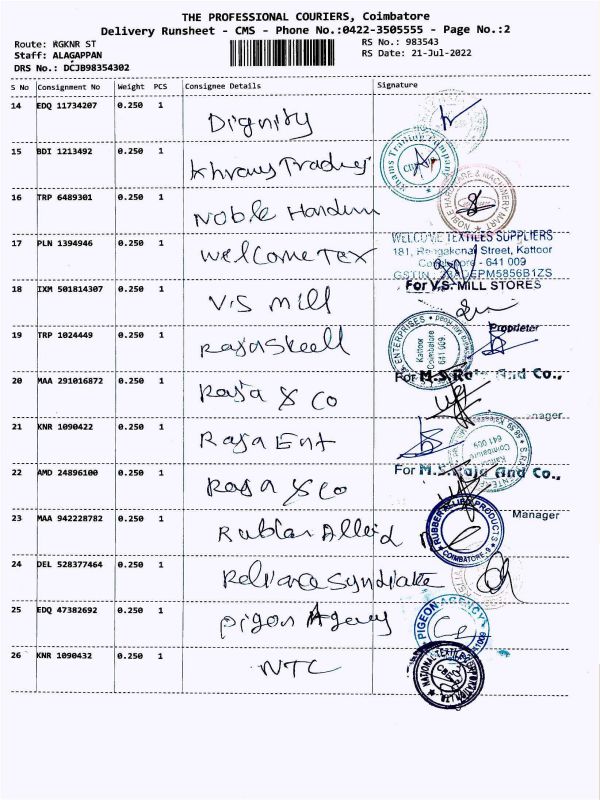 THE PROFESSIONAL COURIERS, Coimbatore
Delivery Runsheet - CMS - Phone No.:0422-3505555 - Page No.:2
Route: RGKNR ST
RS No.: 983543
Staff: ALAGAPPAN
RS Date: 21-Jul-2022
DRS No.: DCJB98354302
S No Consignment No Weight PCS Consignee Details Signature
14 EDQ 11734207 0.250 1 Dignity
15 BDI 1213492 0.250 1
16 TRP 6489301 0.250 1 Noble
NOBLE HARDWARE & MACHINERY MART
17 PLN 1394946 0.250 1 Welcome Tex
WELCOME TEXTILES SUPPLIERS
181, Street, Kattoor
641 009
GSTIN
18 IXM 501814307 0.250 1 V.S mill
For V.S. MILL STORES
Proprietor
19 TRP 1024449 0.250 1
ENTERPRISES
Kattoor
Coimbatore
641 009.
20 MAA 291016872 0.250 1 Raja & Co
For M.S. Raja And Co.,
21 KNR 1090422 0.250 1 Raja Ent
641 009
22 AMD 24896100 0.250 1 Raja & Co
For M.S. Raja And Co.,
Manager
23 MAA 942228782 0.250 1
RUBBER ALLIED PRODUCTS
COIMBATORE-9
24 DEL 528377464 0.250 1 Reliance Syndicate
25 EDQ 47382692 0.250 1 Pigeon Agency
PIGEON AGENCY
26 KNR 1090432 0.250 1 NTC